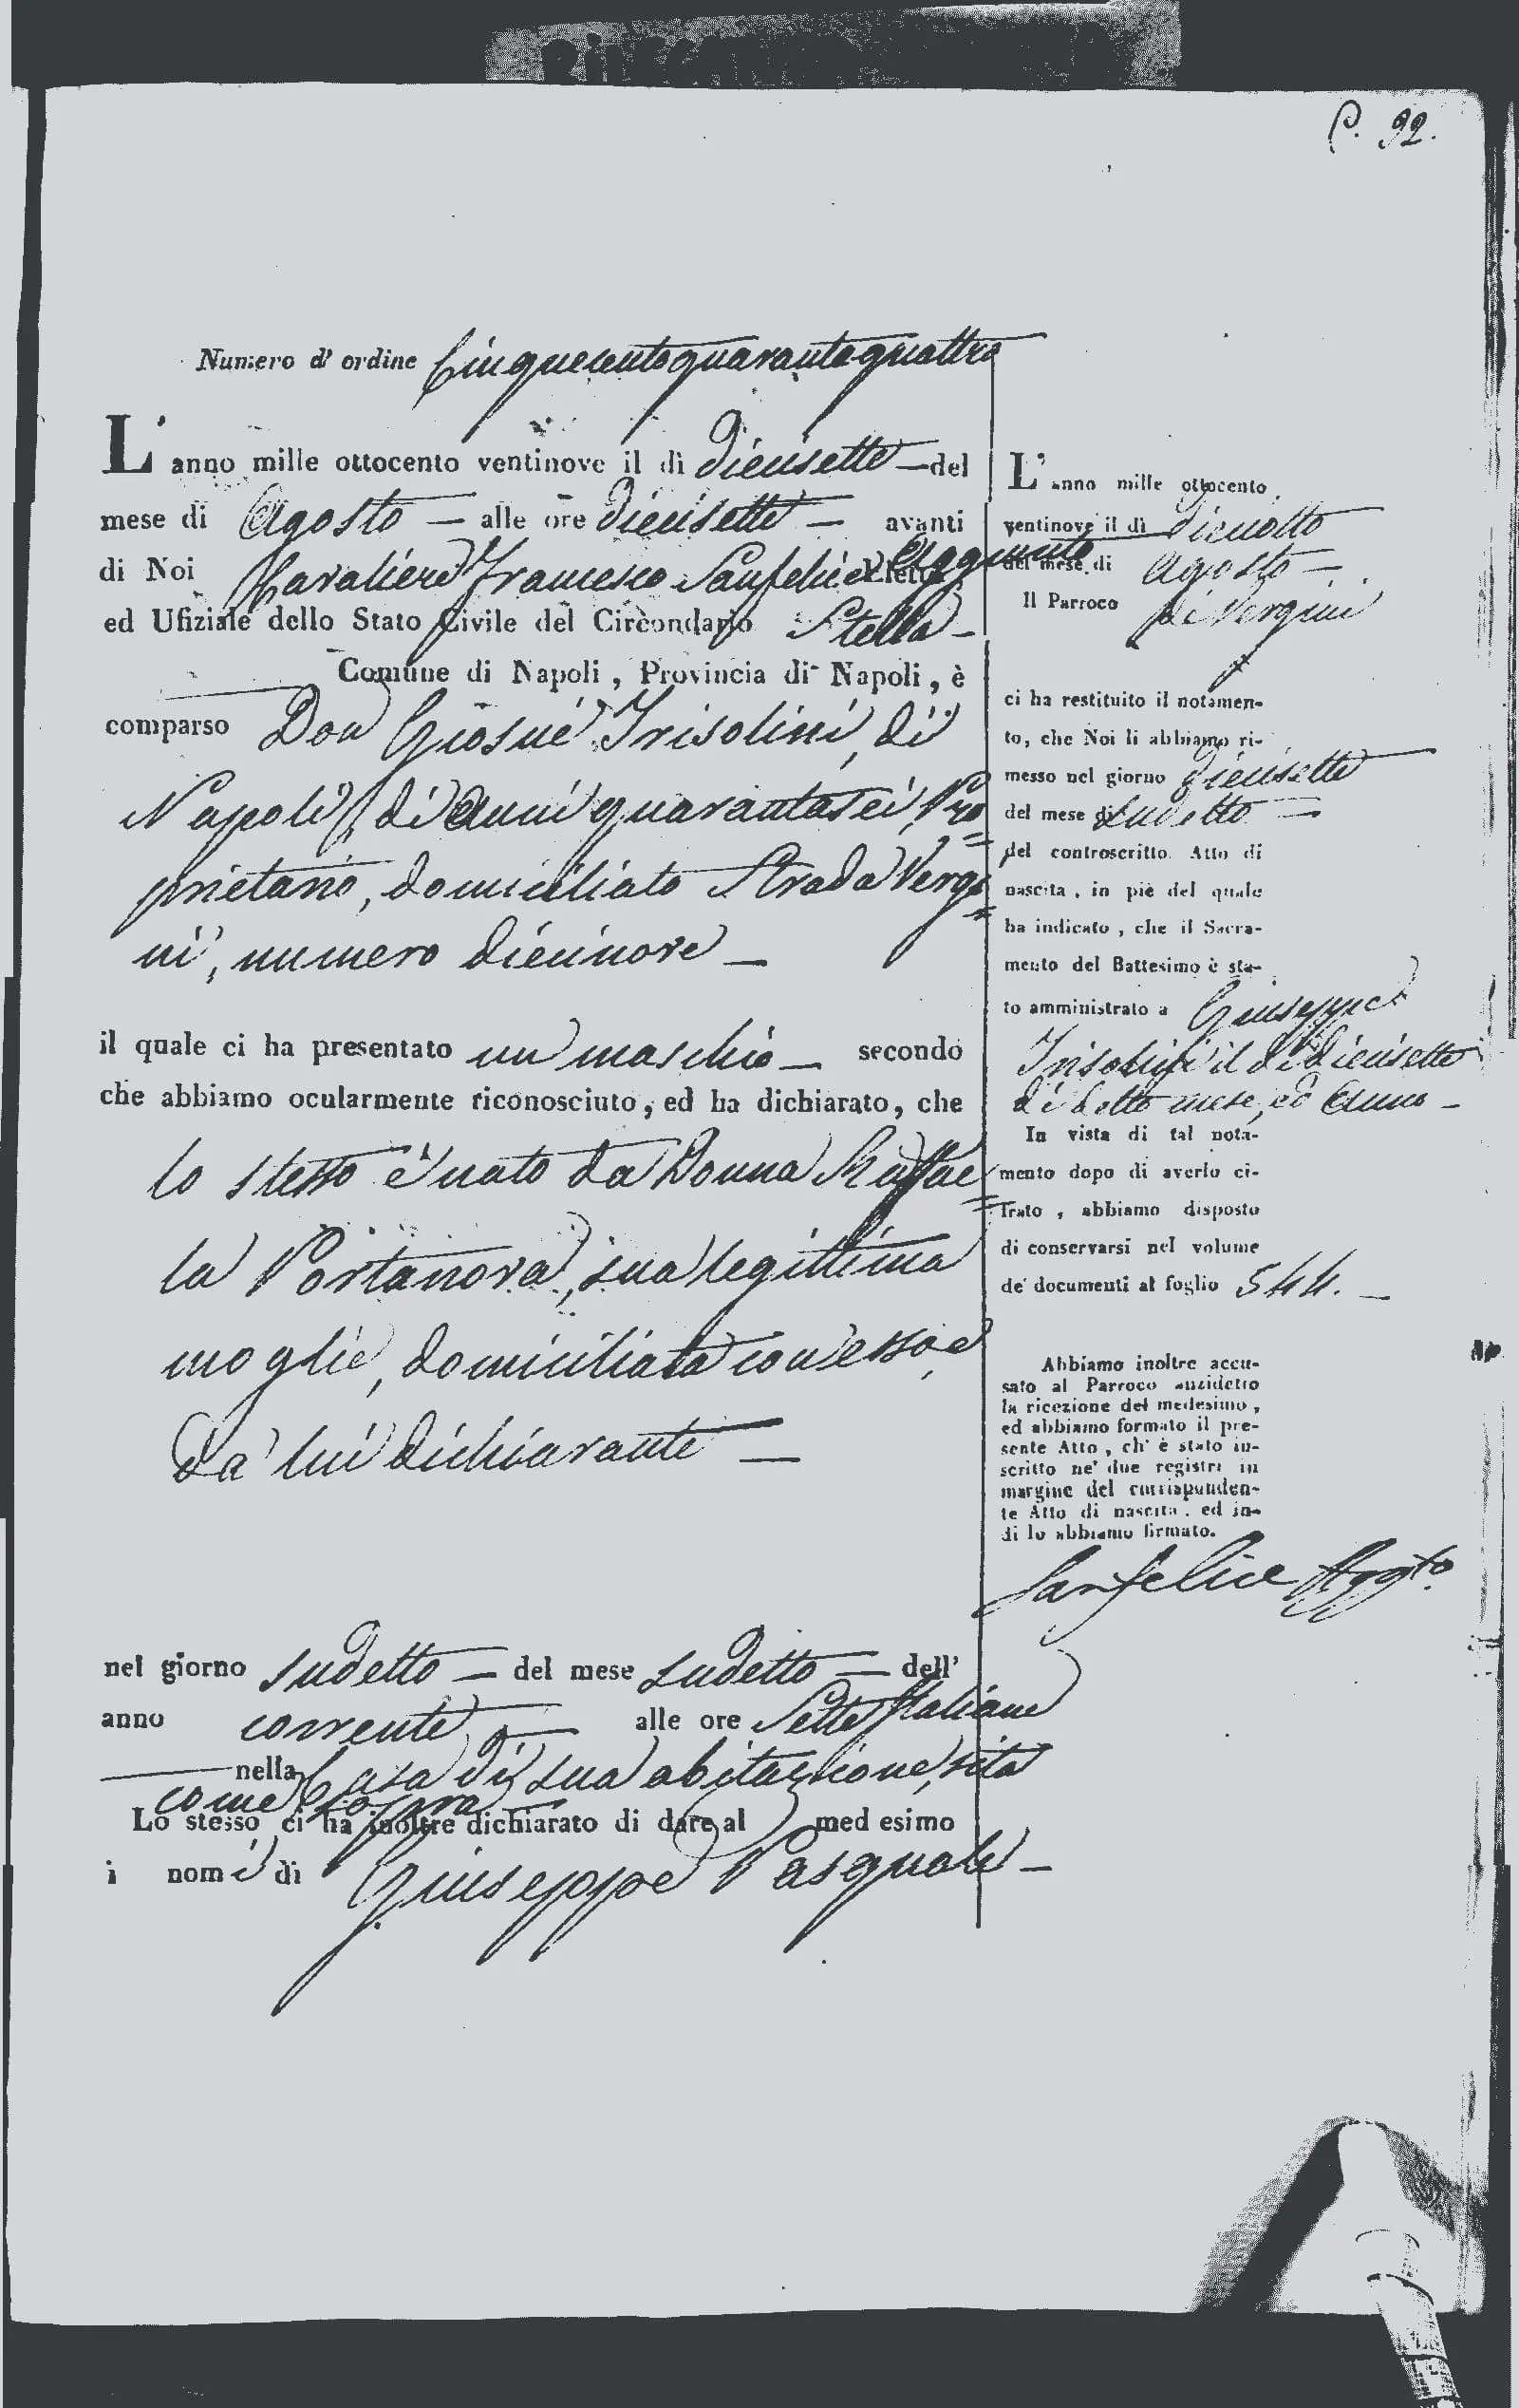 P. 92.
Numero d' ordine Cinquecentoquarantaquattro
L' anno mille ottocento ventinove il dì diecisette — del
mese di Agosto — alle ore diecisette — avanti
di Noi Cavaliere Francesco Sanfelice Eletto Aggiunto
ed Ufiziale dello Stato Civile del Circondario Stella —
Comune di Napoli, Provincia di Napoli, è
comparso Don Giosuè Frisolini, di
Napoli, di anni quarantasei, Pro=
prietario, domiciliato Strada Vergi=
ni, numero diecinove —
il quale ci ha presentato un maschio — secondo
che abbiamo ocularmente riconosciuto, ed ha dichiarato, che
lo stesso è nato da Donna Raffae=
la Portanova, sua legittima
moglie, domiciliata con esso, e
da lui dichiarante —
nel giorno sudetto — del mese sudetto — dell'
anno corrente — alle ore Sette Italiane
nella Casa di sua abitazione, sita
come sopra
Lo stesso ci ha inoltre dichiarato di dare al medesimo
i nomi di Giuseppe Pasquale —
L' anno mille ottocento
ventinove il dì dieciotto
del mese di Agosto —
Il Parroco di Vergini
ci ha restituito il notamen-
to, che Noi li abbiamo ri-
messo nel giorno diecisette
del mese di sudetto —
del controscritto Atto di
nascita, in piè del quale
ha indicato, che il Sacra-
mento del Battesimo è sta-
to amministrato a Giuseppe
Frisolini il dì diecisette
di detto mese, ed Anno —
In vista di tal nota-
mento dopo di averlo ci-
frato, abbiamo disposto
di conservarsi nel volume
de' documenti al foglio 544. —
Abbiamo inoltre accu-
sato al Parroco anzidetto
la ricezione del medesimo,
ed abbiamo formato il pre-
sente Atto, ch' è stato in-
scritto ne' due registri in
margine del corrisponden-
te Atto di nascita, ed in-
di lo abbiamo firmato.
Sanfelice Aggto.